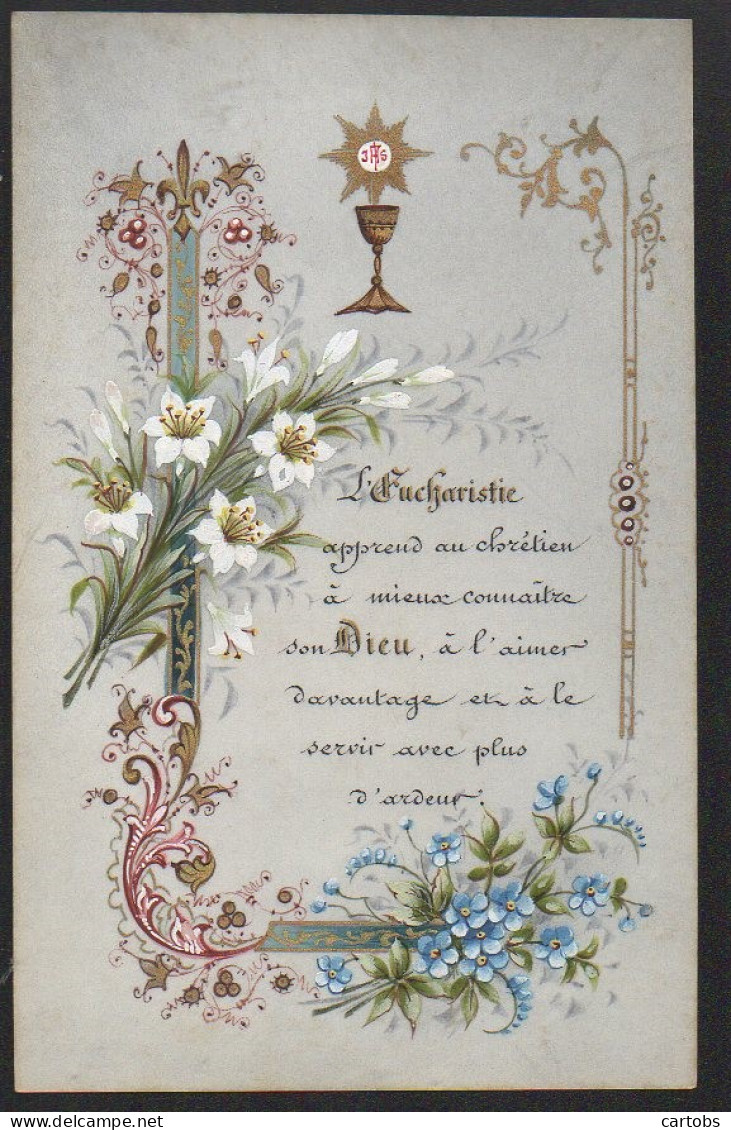 JHS
L'Eucharistie
apprend au chrétien
à mieux connaître
son Dieu, à l'aimer
davantage et à le
servir avec plus
d'ardeur.
cartobs